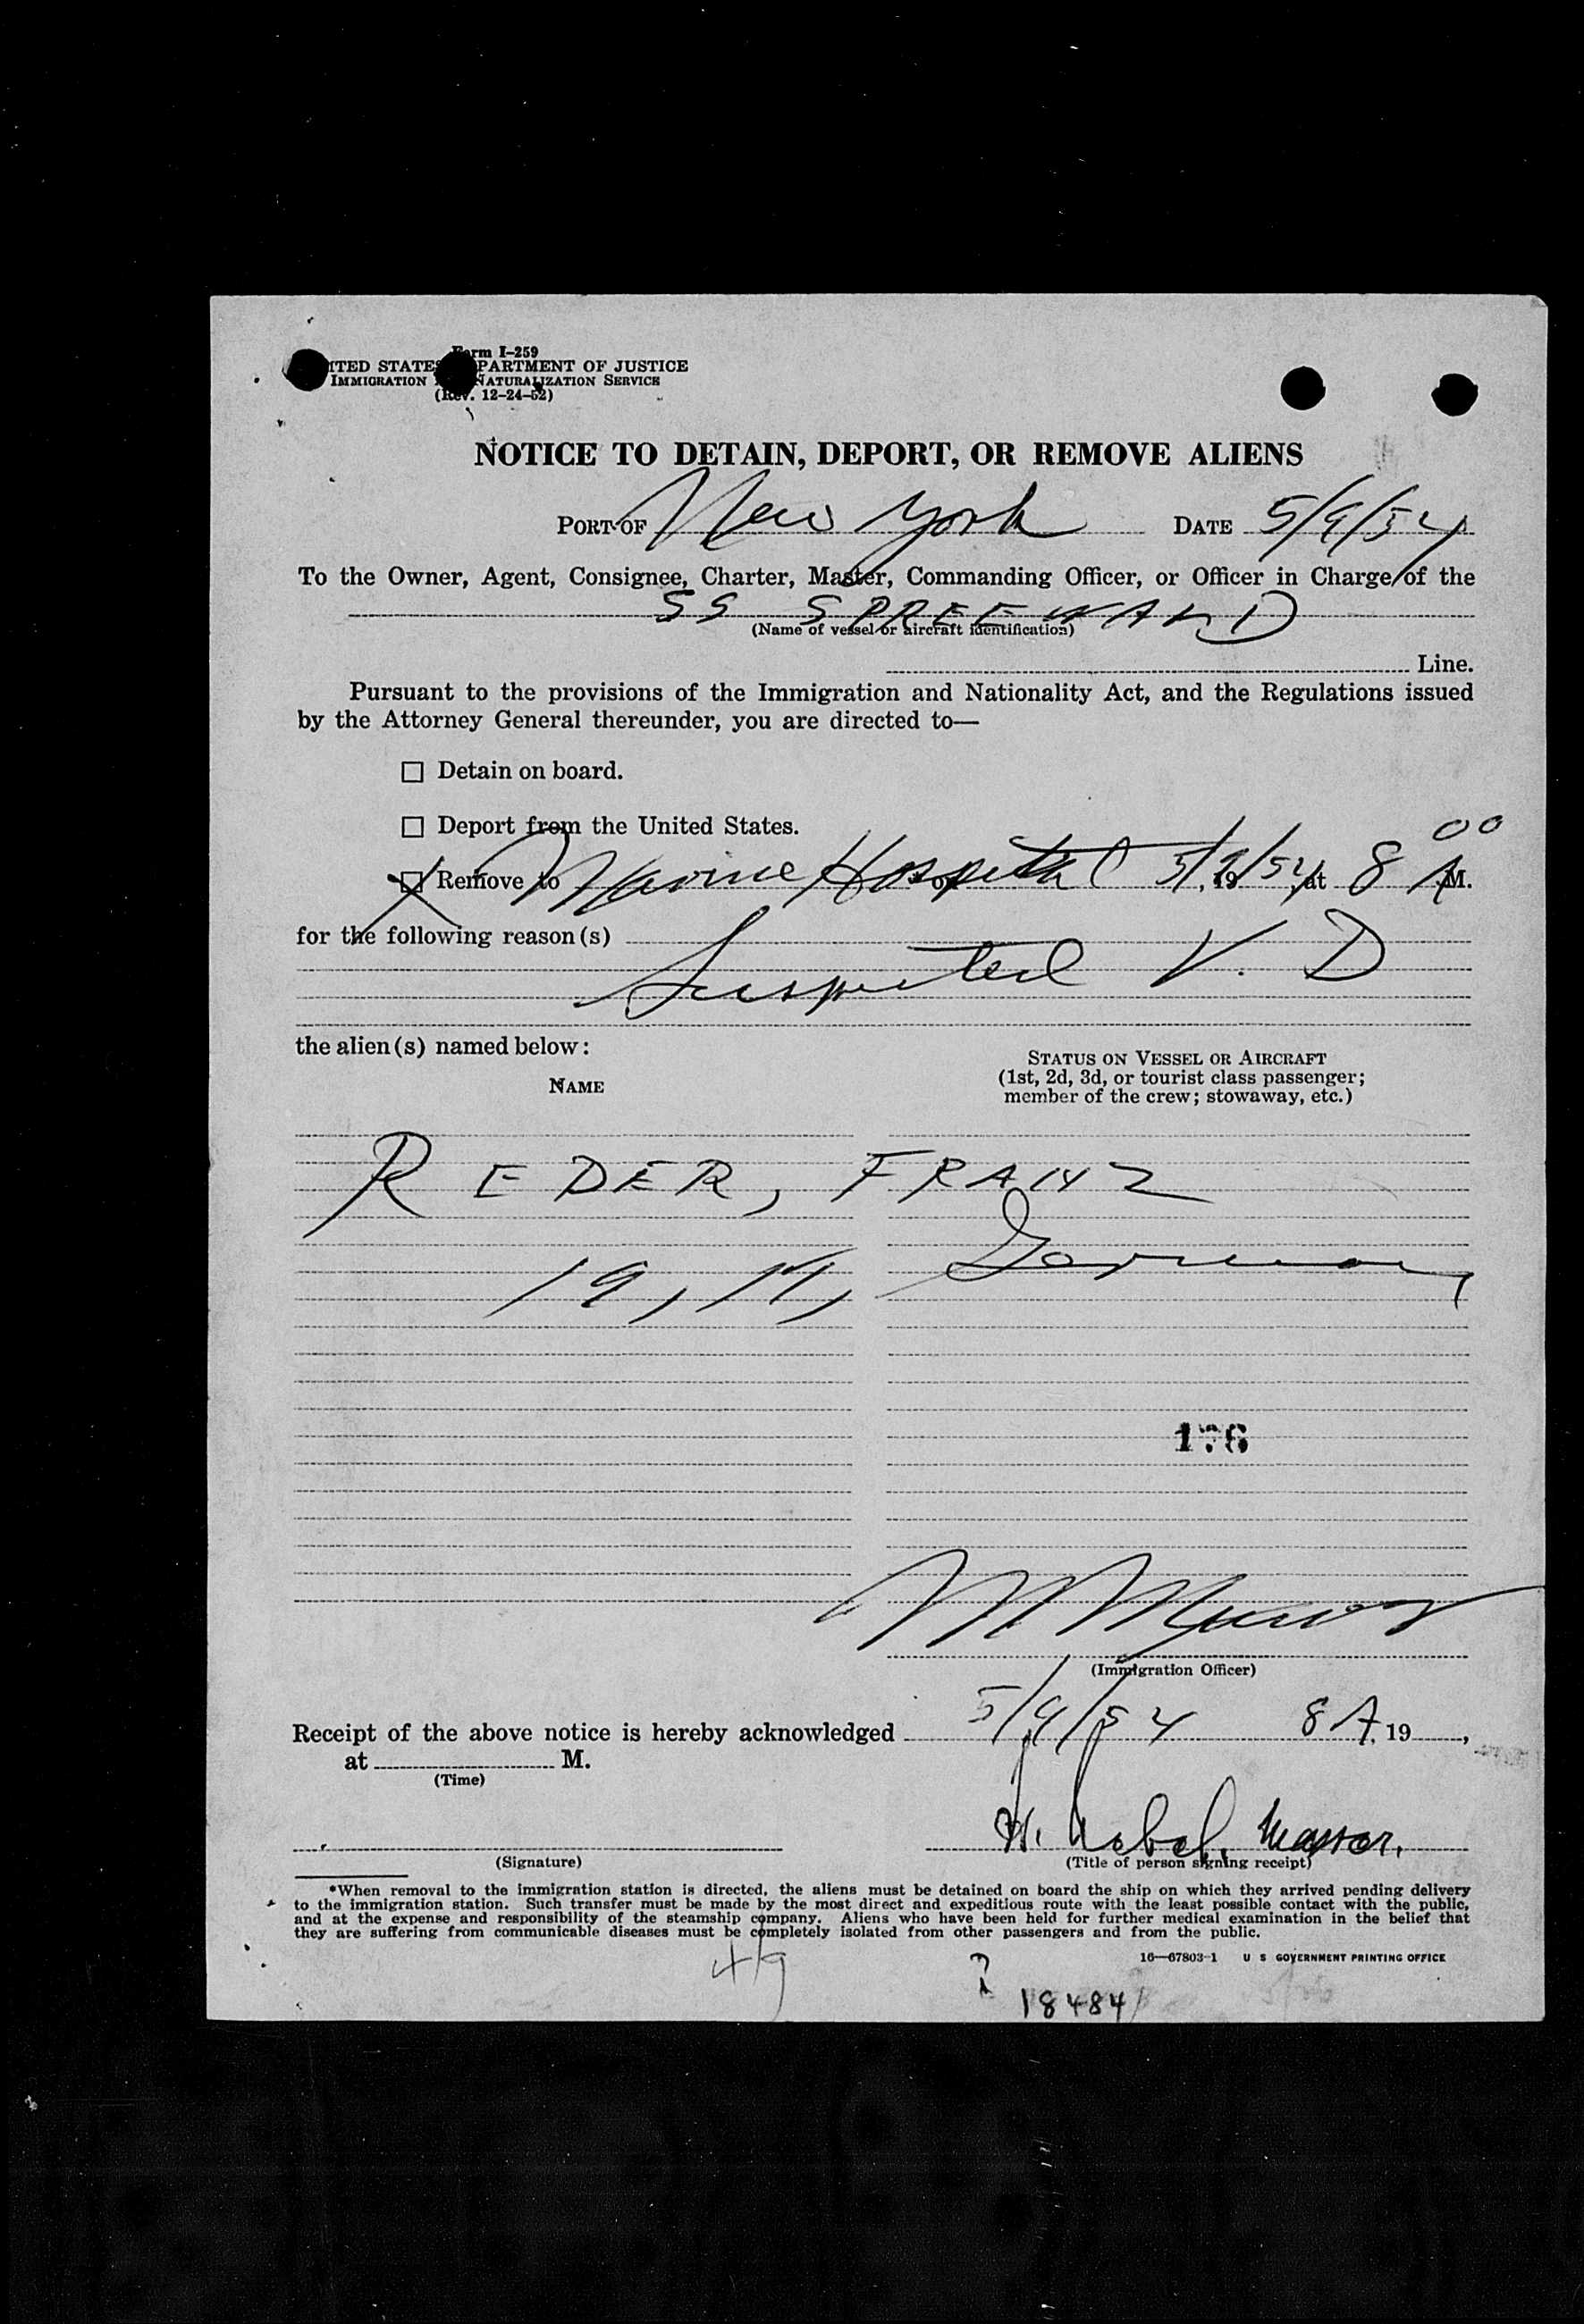 Form I-259
ITED STATES PARTMENT OF JUSTICE
IMMIGRATION NATURALIZATION SERVICE
(Rev. 12-24-52)
NOTICE TO DETAIN, DEPORT, OR REMOVE ALIENS
PORT OF New York DATE 5/9/54
To the Owner, Agent, Consignee, Charter, Master, Commanding Officer, or Officer in Charge of the
SS SPREEWALD
(Name of vessel or aircraft identification)
Line.
Pursuant to the provisions of the Immigration and Nationality Act, and the Regulations issued
by the Attorney General thereunder, you are directed to—
☐ Detain on board.
☐ Deport from the United States.
☒ Remove to Marine Hospital on 5/9/54, 19 at 8 00 A M.
for the following reason(s)
Suspected V. D
the alien(s) named below:
STATUS ON VESSEL OR AIRCRAFT
NAME
(1st, 2d, 3d, or tourist class passenger;
member of the crew; stowaway, etc.)
REDER, FRANZ
19, M, German
176
(Immigration Officer)
Receipt of the above notice is hereby acknowledged 5/9/54 8 A, 19 ,
at M.
(Time)
H. Nebel, Master.
(Signature) (Title of person signing receipt)
*When removal to the immigration station is directed, the aliens must be detained on board the ship on which they arrived pending delivery
to the immigration station. Such transfer must be made by the most direct and expeditious route with the least possible contact with the public,
and at the expense and responsibility of the steamship company. Aliens who have been held for further medical examination in the belief that
they are suffering from communicable diseases must be completely isolated from other passengers and from the public.
16—67803-1 U S GOVERNMENT PRINTING OFFICE
49
?
18484